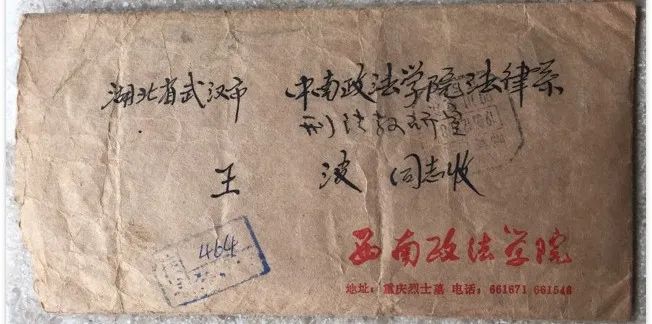 湖北省武汉市 中南政法学院法律系
刑法教研室
王 波 同志收
464
西南政法学院
地址：重庆烈士墓 电话：661671 661548